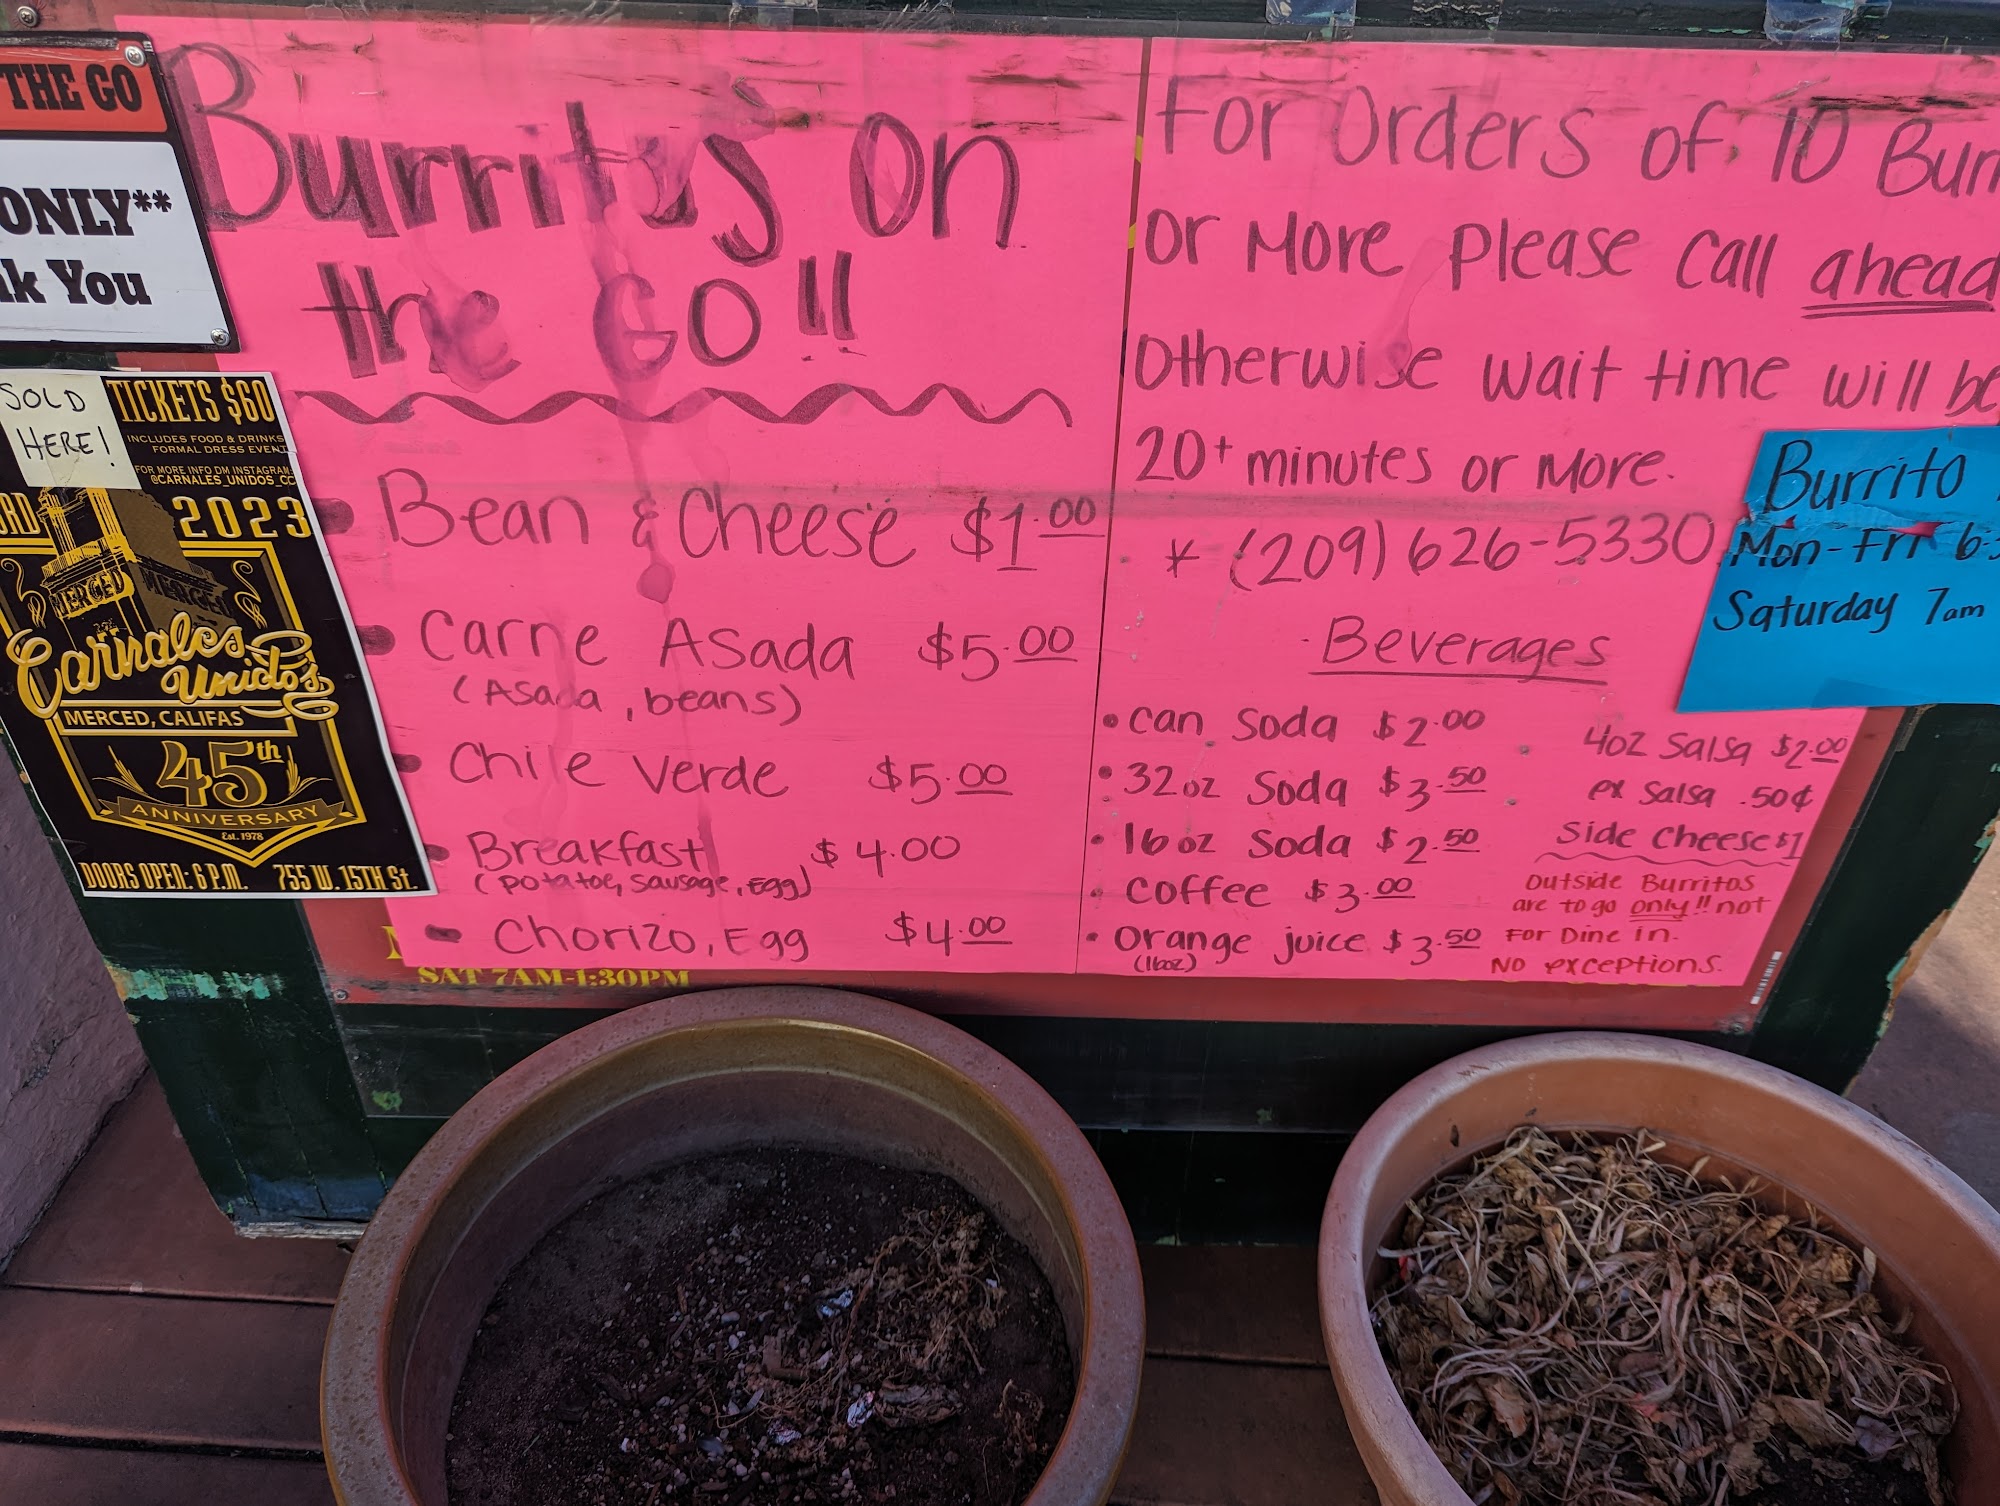 THE GO
ONLY**
Thank You
SOLD
HERE!
TICKETS $60
INCLUDES FOOD & DRINKS
FORMAL DRESS EVENT
FOR MORE INFO DM INSTAGRAM:
@CARNALES_UNIDOS_CC
2023
MERCED
MERCED
Carnales
Unidos
MERCED, CALIFAS
45th
ANNIVERSARY
Est. 1978
DOORS OPEN: 6 P.M. 755 W. 15TH St.
Burrito's On
the GO!!
Bean & Cheese $1.00
Carne Asada $5.00
(Asada, beans)
Chile Verde $5.00
Breakfast $4.00
(potatoe, sausage, Egg)
Chorizo, Egg $4.00
SAT 7AM-1:30PM
For Orders of 10
or More please call ahead
Otherwise wait time will be
20+ minutes or More.
* (209) 626-5330
Beverages
can Soda $2.00
32oz Soda $3.50
16oz Soda $2.50
Coffee $3.00
Orange juice $3.50
(16oz)
4oz Salsa $2.00
ex Salsa .50¢
Side Cheese $1
Outside Burritos
are to go only!! not
For Dine in.
NO exceptions.
Burrito
Mon-Fri
Saturday 7am